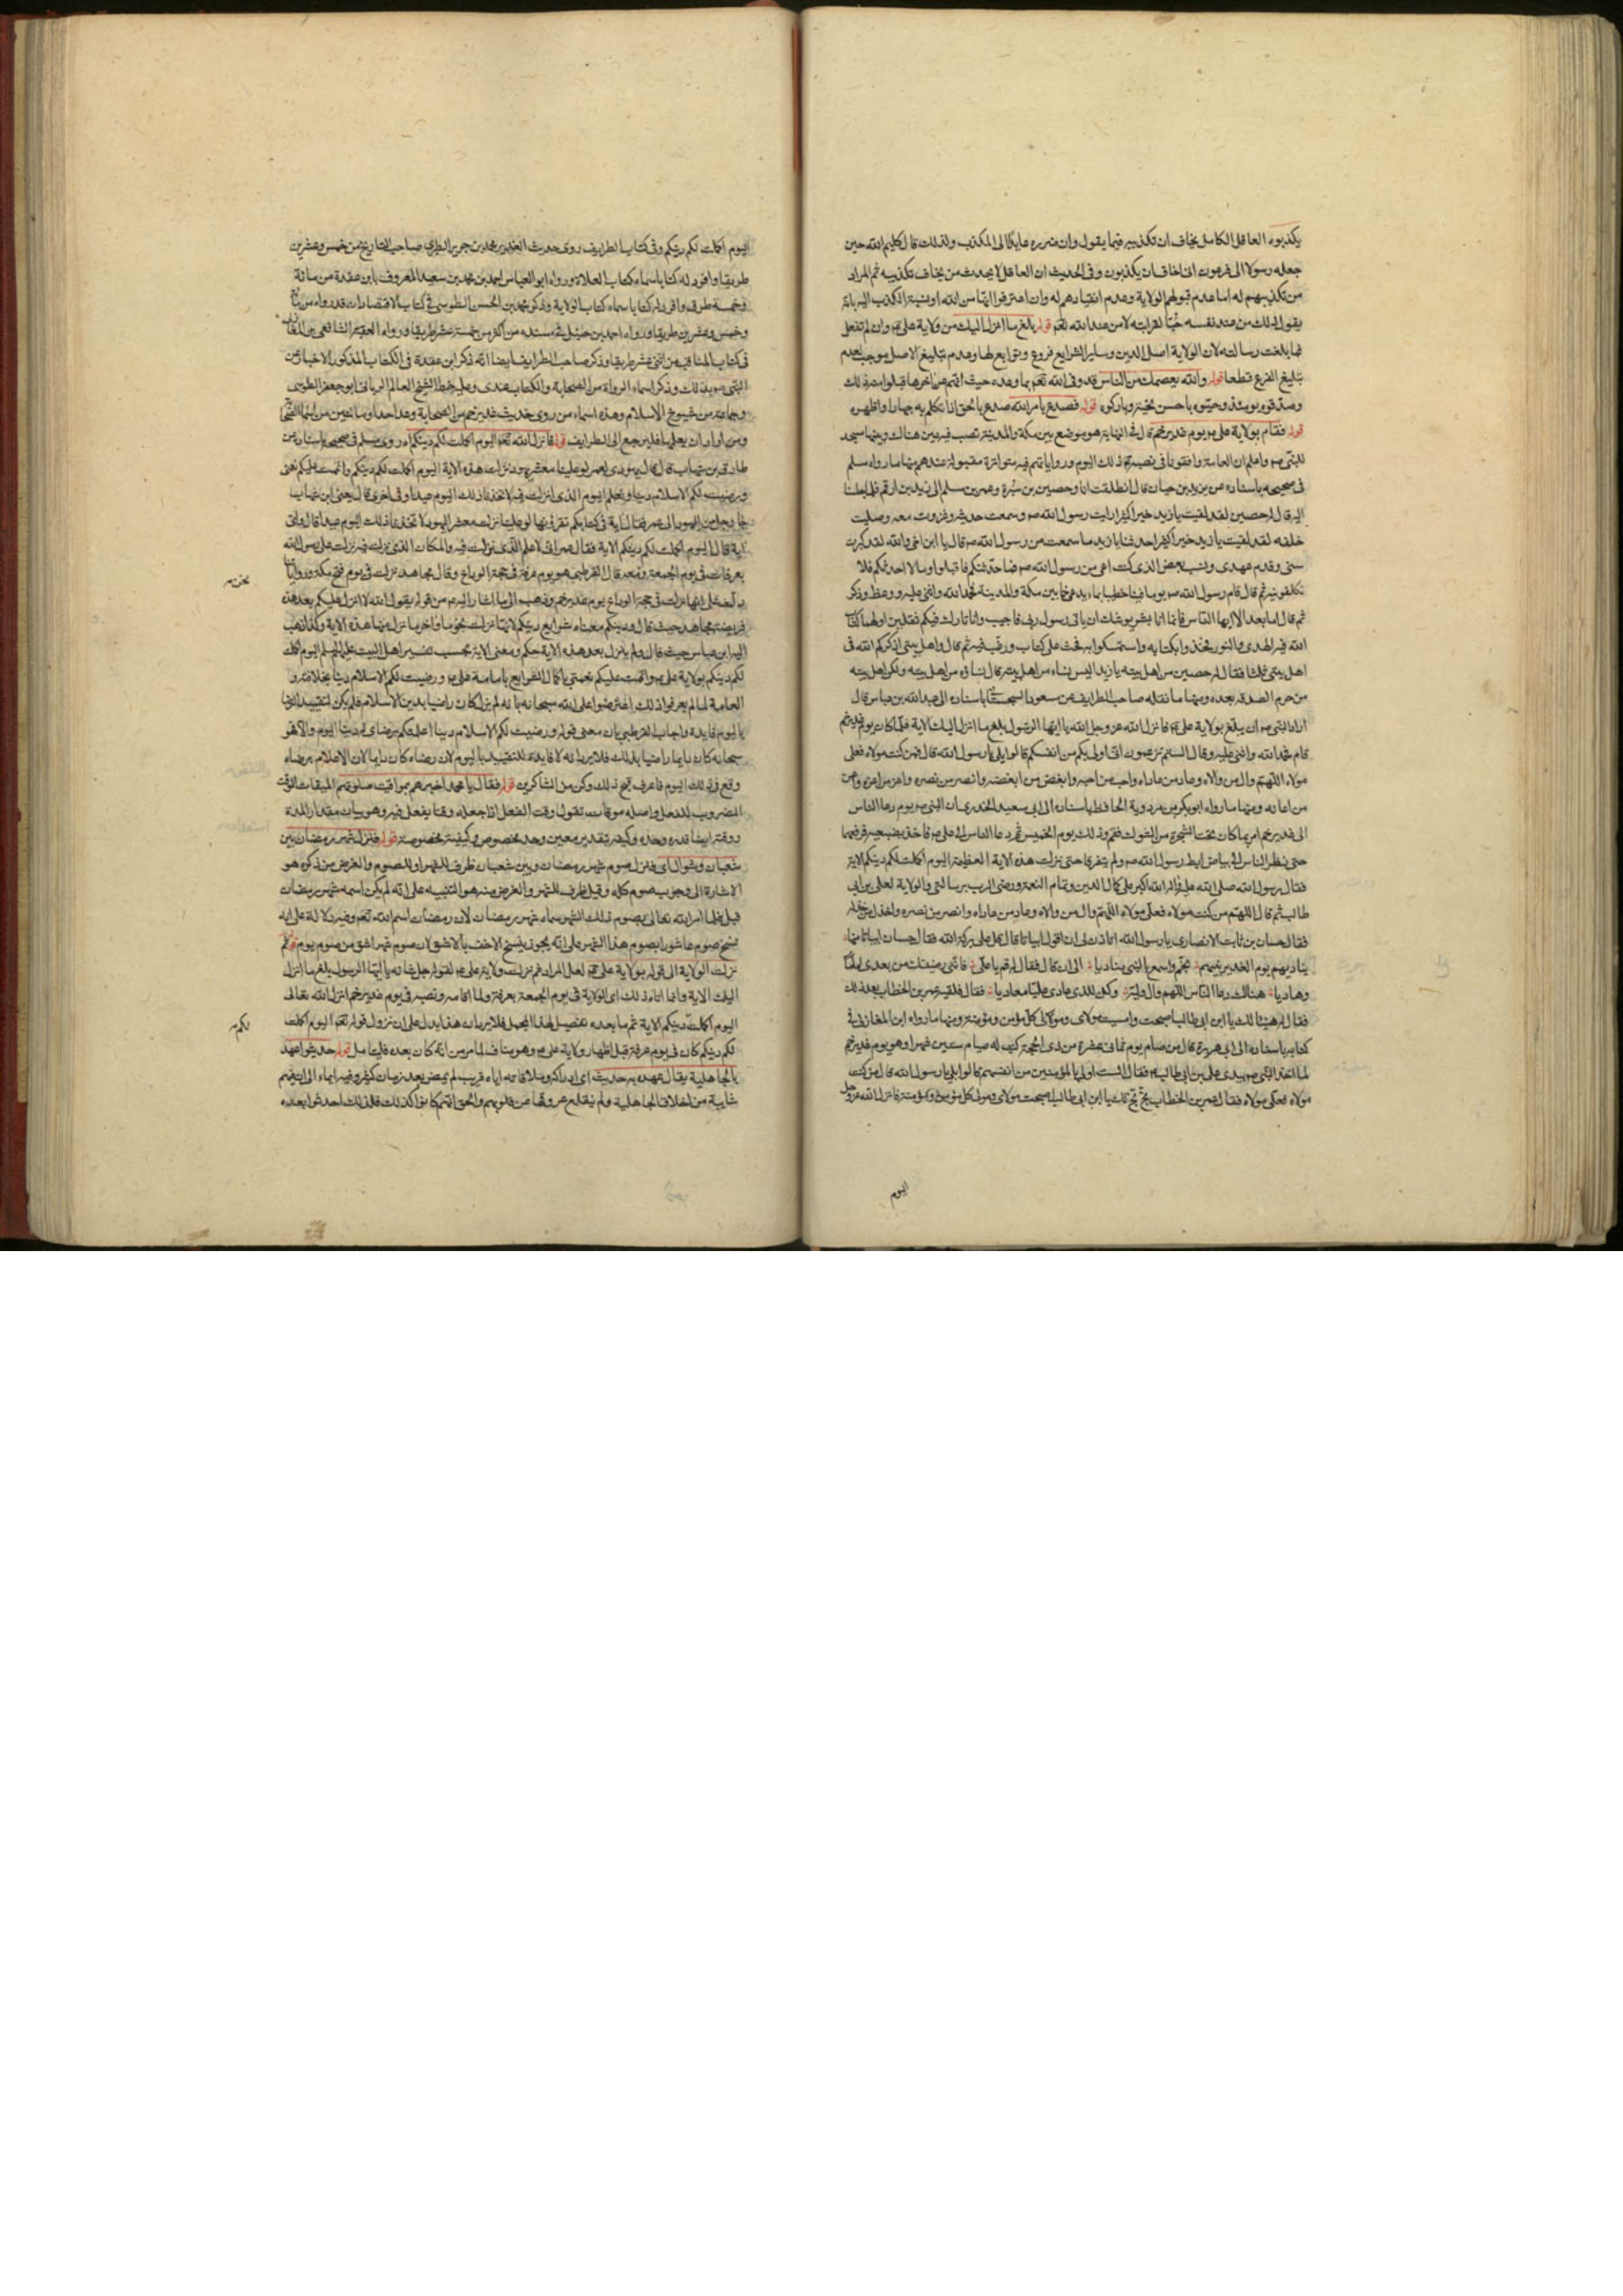 يكذبوه العاقل الكامل يخاف ان تكذيبه فيما يقول وان ضرره عايدا الى المكذب ولذلك قال كليم الله حين
جعله رسولا الى فرعون انى اخاف ان يكذبون وفى الحديث ان العاقل لا يحدث من يخاف تكذيبه ثم المراد
من تكذيبهم له اما عدم قبولهم الولاية وعدم انقيادهم له وان اعترفوا انها من الله او نسبة الكذب اليه بانه
يقول ذلك من عند نفسه حبا لقرابته لا من عند الله تعم قوله بلغ ما انزل اليك من ولاية على وان لم تفعل
فما بلغت رسالته لان الولاية اصل الدين وساير الشرايع فروع وتوابع لها وعدم تبليغ الاصل موجب لعدم
تبليغ الفرع قطعا قوله والله يعصمك من الناس قد وفى الله تعم بما وعده حيث انهم عن اخرها قبلوا منه ذلك
وصدقوه يومئذ وحيوه باحسن تحية وباركوه قوله فصدع بامر الله صدع بالحق اذا تكلم به جهارا واظهره
قوله فقام بولاية على يوم غدير خم قال فى النهاية هو موضع بين مكة والمدينة تصب فيه عين هناك وبينهما مسجد
للنبى ص واعلم ان العامة وافقونا فى نصبه ذلك اليوم ورواياتهم فيه متواترة مقبولة عندهم منها ما رواه مسلم
فى صحيحه باسناده عن يزيد بن حيان قال انطلقت انا وحصين بن سبرة وعمر بن مسلم الى زيد بن ارقم فلما جلسنا
اليه قال له حصين لقد لقيت يا زيد خيرا كثيرا رايت رسول الله ص وسمعت حديثه وغزوت معه وصليت
خلفه لقد لقيت يا زيد خيرا كثيرا حدثنا يا زيد ما سمعت من رسول الله ص قال يا ابن اخى والله لقد كبرت
سنى وقدم عهدى ونسيت بعض الذى كنت اعى من رسول الله ص فما حدثتكم فاقبلوا وما لا احدثكم فلا
تكلفونيه ثم قال قام رسول الله ص يوما فينا خطيبا بماء يدعى خما بين مكة والمدينة فحمد الله واثنى عليه ووعظ وذكر
ثم قال اما بعد الا ايها الناس فانما انا بشر يوشك ان ياتى رسول ربى فاجيب وانا تارك فيكم ثقلين اولهما كتاب
الله فيه الهدى والنور فخذوا بكتابه واستمسكوا به فحث على كتاب ورغب فيه ثم قال واهل بيتى اذكركم الله فى
اهل بيتى ثلثا فقال له حصين من اهل بيته يا زيد اليس نساءه من اهل بيته قال نساؤه من اهل بيته ولكن اهل بيته
من حرم الصدقة بعده ومنها ما نقله صاحب الطرايف عن مسعود السجستانى باسناده الى عبد الله بن عباس قال
اراد النبى ص ان يبلغ بولاية على فانزل الله عز وجل يا ايها الرسول بلغ ما انزل اليك الاية فلما كان يوم غدير خم
قام فحمد الله واثنى عليه وقال الستم تزعمون انى اولى بكم من انفسكم قالوا بلى يا رسول الله قال فمن كنت مولاه فعلى
مولاه اللهم وال من والاه وعاد من عاداه واحب من احبه وابغض من ابغضه وانصر من نصره واعز من اعزه واعن
من اعانه ومنها ما رواه ابو بكر بن مردوية الحافظ باسناده الى ابى سعيد الخدرى ان النبى ص يوم دعا الناس
الى غدير خم امر بما كان تحت الشجرة من الشوك فقم وذلك يوم الخميس ثم دعا الناس الى على فاخذ بضبعيه فرفعهما
حتى نظر الناس الى بياض ابط رسول الله ص ولم يتفرقا حتى نزلت هذه الاية العظيمة اليوم اكملت لكم دينكم الاية
فقال رسول الله صلى الله عليه واله الله اكبر على كمال الدين وتمام النعمة ورضى الرب برسالتى والولاية لعلى بن ابى
طالب ثم قال اللهم من كنت مولاه فعلى مولاه اللهم وال من والاه وعاد من عاداه وانصر من نصره واخذل من خذله
فقال حسان بن ثابت الانصارى يا رسول الله اتاذن لى ان اقول ابياتا قال قل على بركة الله فقال حسان ابياتا منها
يناديهم يوم الغدير نبيهم بخم واسمع بالنبى مناديا الى ان قال فقال له قم يا على فاننى رضيتك من بعدى اماما
وهاديا هناك دعا الناس اللهم وال وليه وكن للذى عادى عليا معاديا فقال فلقيه عمر بن الخطاب بعد ذلك
فقال له هنيئا لك يا ابن ابى طالب اصبحت وامسيت مولاى ومولى كل مؤمن ومؤمنة ومنها ما رواه ابن المغازلى فى
كتابه باسناده الى ابى هريرة قال من صام يوم ثمانى عشرة من ذى الحجة كتب له صيام ستين شهرا وهو يوم غدير خم
لما اخذ النبى ص بيدى على بن ابى طالب فقال الست اولى بالمؤمنين من انفسهم قالوا بلى يا رسول الله قال من كنت
مولاه فعلى مولاه فقال عمر بن الخطاب بخ بخ لك يا ابن ابى طالب اصبحت مولاى ومولى كل مؤمن ومؤمنة فانزل الله عز وجل
اليوم
اليوم اكملت لكم دينكم وفى كتاب الطرايف روى حديث الغدير محمد بن جرير الطبرى صاحب التاريخ من خمس وعشرين
طريقا وافرد له كتابا سماه كتاب الولاية ورواه ابو العباس احمد بن محمد بن سعيد المعروف بابن عقدة من مائة
وخمسة طرق وافرد له كتابا سماه كتاب الولاية وذكر محمد بن الحسن الطوسى فى كتاب الاقتصاد ان قد رواه من مائة
وخمس وعشرين طريقا ورواه احمد بن حنبل فى مسنده من اكثر من خمسة عشر طريقا ورواه الفقيه الشافعى ابن المغازلى
فى كتاب المناقب من اثنى عشر طريقا وذكر صاحب الطرايف ايضا انه ذكر ابن عقدة فى الكتاب المذكور الاخبار عن
النبى ص بذلك وذكر اسماء الرواة من الصحابة والكتاب عندى وعليه خط الشيخ العالم الربانى ابو جعفر الطوسى
وجماعة من شيوخ الاسلام وهذه اسماء من روى حديث غدير خم من الصحابة
ومن اراد ان يعلمها فليرجع الى الطرايف قوله فانزل الله تعم اليوم اكملت لكم دينكم روى مسلم فى صحيحه باسناده عن
طارق بن شهاب قال قال يهودى لعمر لو علينا معشر يهود نزلت هذه الاية اليوم اكملت لكم دينكم واتممت عليكم نعمتى
ورضيت لكم الاسلام دينا ونعلم اليوم الذى انزلت فيه لاتخذنا ذلك اليوم عيدا وفى اخرى قال يعنى ابن شهاب
جاء رجل من اليهود الى عمر فقال اية فى كتابكم تقرؤنها لو علينا نزلت معشر اليهود لاتخذنا ذلك اليوم عيدا قال واى
اية قال اليوم اكملت لكم دينكم الاية فقال عمر انى لاعلم اليوم الذى نزلت فيه والمكان الذى نزلت فيه نزلت على رسول الله
بعرفات فى يوم الجمعة قال القرطبى هو يوم عرفة فى حجة الوداع وقال مجاهد نزلت فى يوم فتح مكة ورواياتنا
دالة على انها نزلت فى حجة الوداع يوم غدير خم وذهب الى ما اشار اليه من قوله يقول الله لا انزل عليكم بعد هذه
فريضة مجاهد حيث قال ودينكم معناه شرايع دينكم لانها نزلت نجوما واخر ما نزل منها هذه الاية وكذا ذهب
اليه ابن عباس حيث قال ولم ينزل بعد هذه الاية حكم ومعنى الاية بحسب تفسير اهل البيت عليهم السلم اليوم اكملت
لكم دينكم بولاية على واتممت عليكم نعمتى باكمال الشرايع بامامة على ورضيت لكم الاسلام دينا بخلافته و
العامة لما لم يعرفوا ذلك اعترضوا على الله سبحانه بانه لم يزل كان راضيا بدين الاسلام فلم يكن لتقييد الرضا
باليوم فايدة واجاب القرطبى بان معنى قوله ورضيت لكم الاسلام دينا اعلمتكم برضاى له دينا اليوم والا فهو
سبحانه كان دايما راضيا بذلك فلا يرد انه لا فايدة للتقييد باليوم لان رضاه كان دايما لان الاعلام برضاه
وقع فى ذلك اليوم فاعرف قبح ذلك وكن من الشاكرين قوله فقال يا محمد اخبرهم بمواقيت صلوتهم الميقات الوقت
المضروب للفعل واصله موقات تقول وقت الفعل اذا جعله وقتا يفعل فيه وهو بيان مقدار المدة
ووقته ايضا قدره وحده وكيفه بتقدير معين وحد مخصوص وكيفية مخصوصة قوله فنزل شهر رمضان بين
شعبان وشوال اى فنزل صوم شهر رمضان وبين شعبان ظرف للشهر او للصوم والغرض من ذكره هو
الاشارة الى وجوب صوم كله وقيل ظرف للشهر والغرض منه هو التنبيه على انه لم يكن اسمه شهر رمضان
قبل فلما امر الله تعالى بصوم ذلك الشهر سماه شهر رمضان لان رمضان اسم الله تعم وفيه دلالة على انه
نسخ صوم عاشورا بصوم هذا الشهر على انه يجوز نسخ الاخف بالاشق لان صوم شهر اشق من صوم يوم قوله ثم
نزلت الولاية الى قوله بولاية على لعل المراد ثم نزلت ولاية على لقوله جل شانه يا ايها الرسول بلغ ما انزل
اليك الاية وانما اتاه ذلك اى الولاية فى يوم الجمعة بعرفة ولما اقامه ونصبه فى يوم غدير خم انزل الله تعالى
اليوم اكملت دينكم الاية ثم ما بعده تفصيل لهذا المجمل فلا يرد ان هذا يدل على ان نزول قوله تعم اليوم اكملت
لكم دينكم كان فى يوم عرفة قبل اظهار ولاية على وهو مناف لما مر من انه كان بعده فليتامل قوله حديثوا عهد
بالجاهلية يقال عهده به حديث اى ادراكه وملاقاته اياه قريب لم يمض بعد زمان كثير وفيه ايماء الى ان فيهم
شايبة من اخلاق الجاهلية ولم ينقلع عروقها من قلوبهم والحق انهم كانوا كذلك فلذلك احدثوا بعده